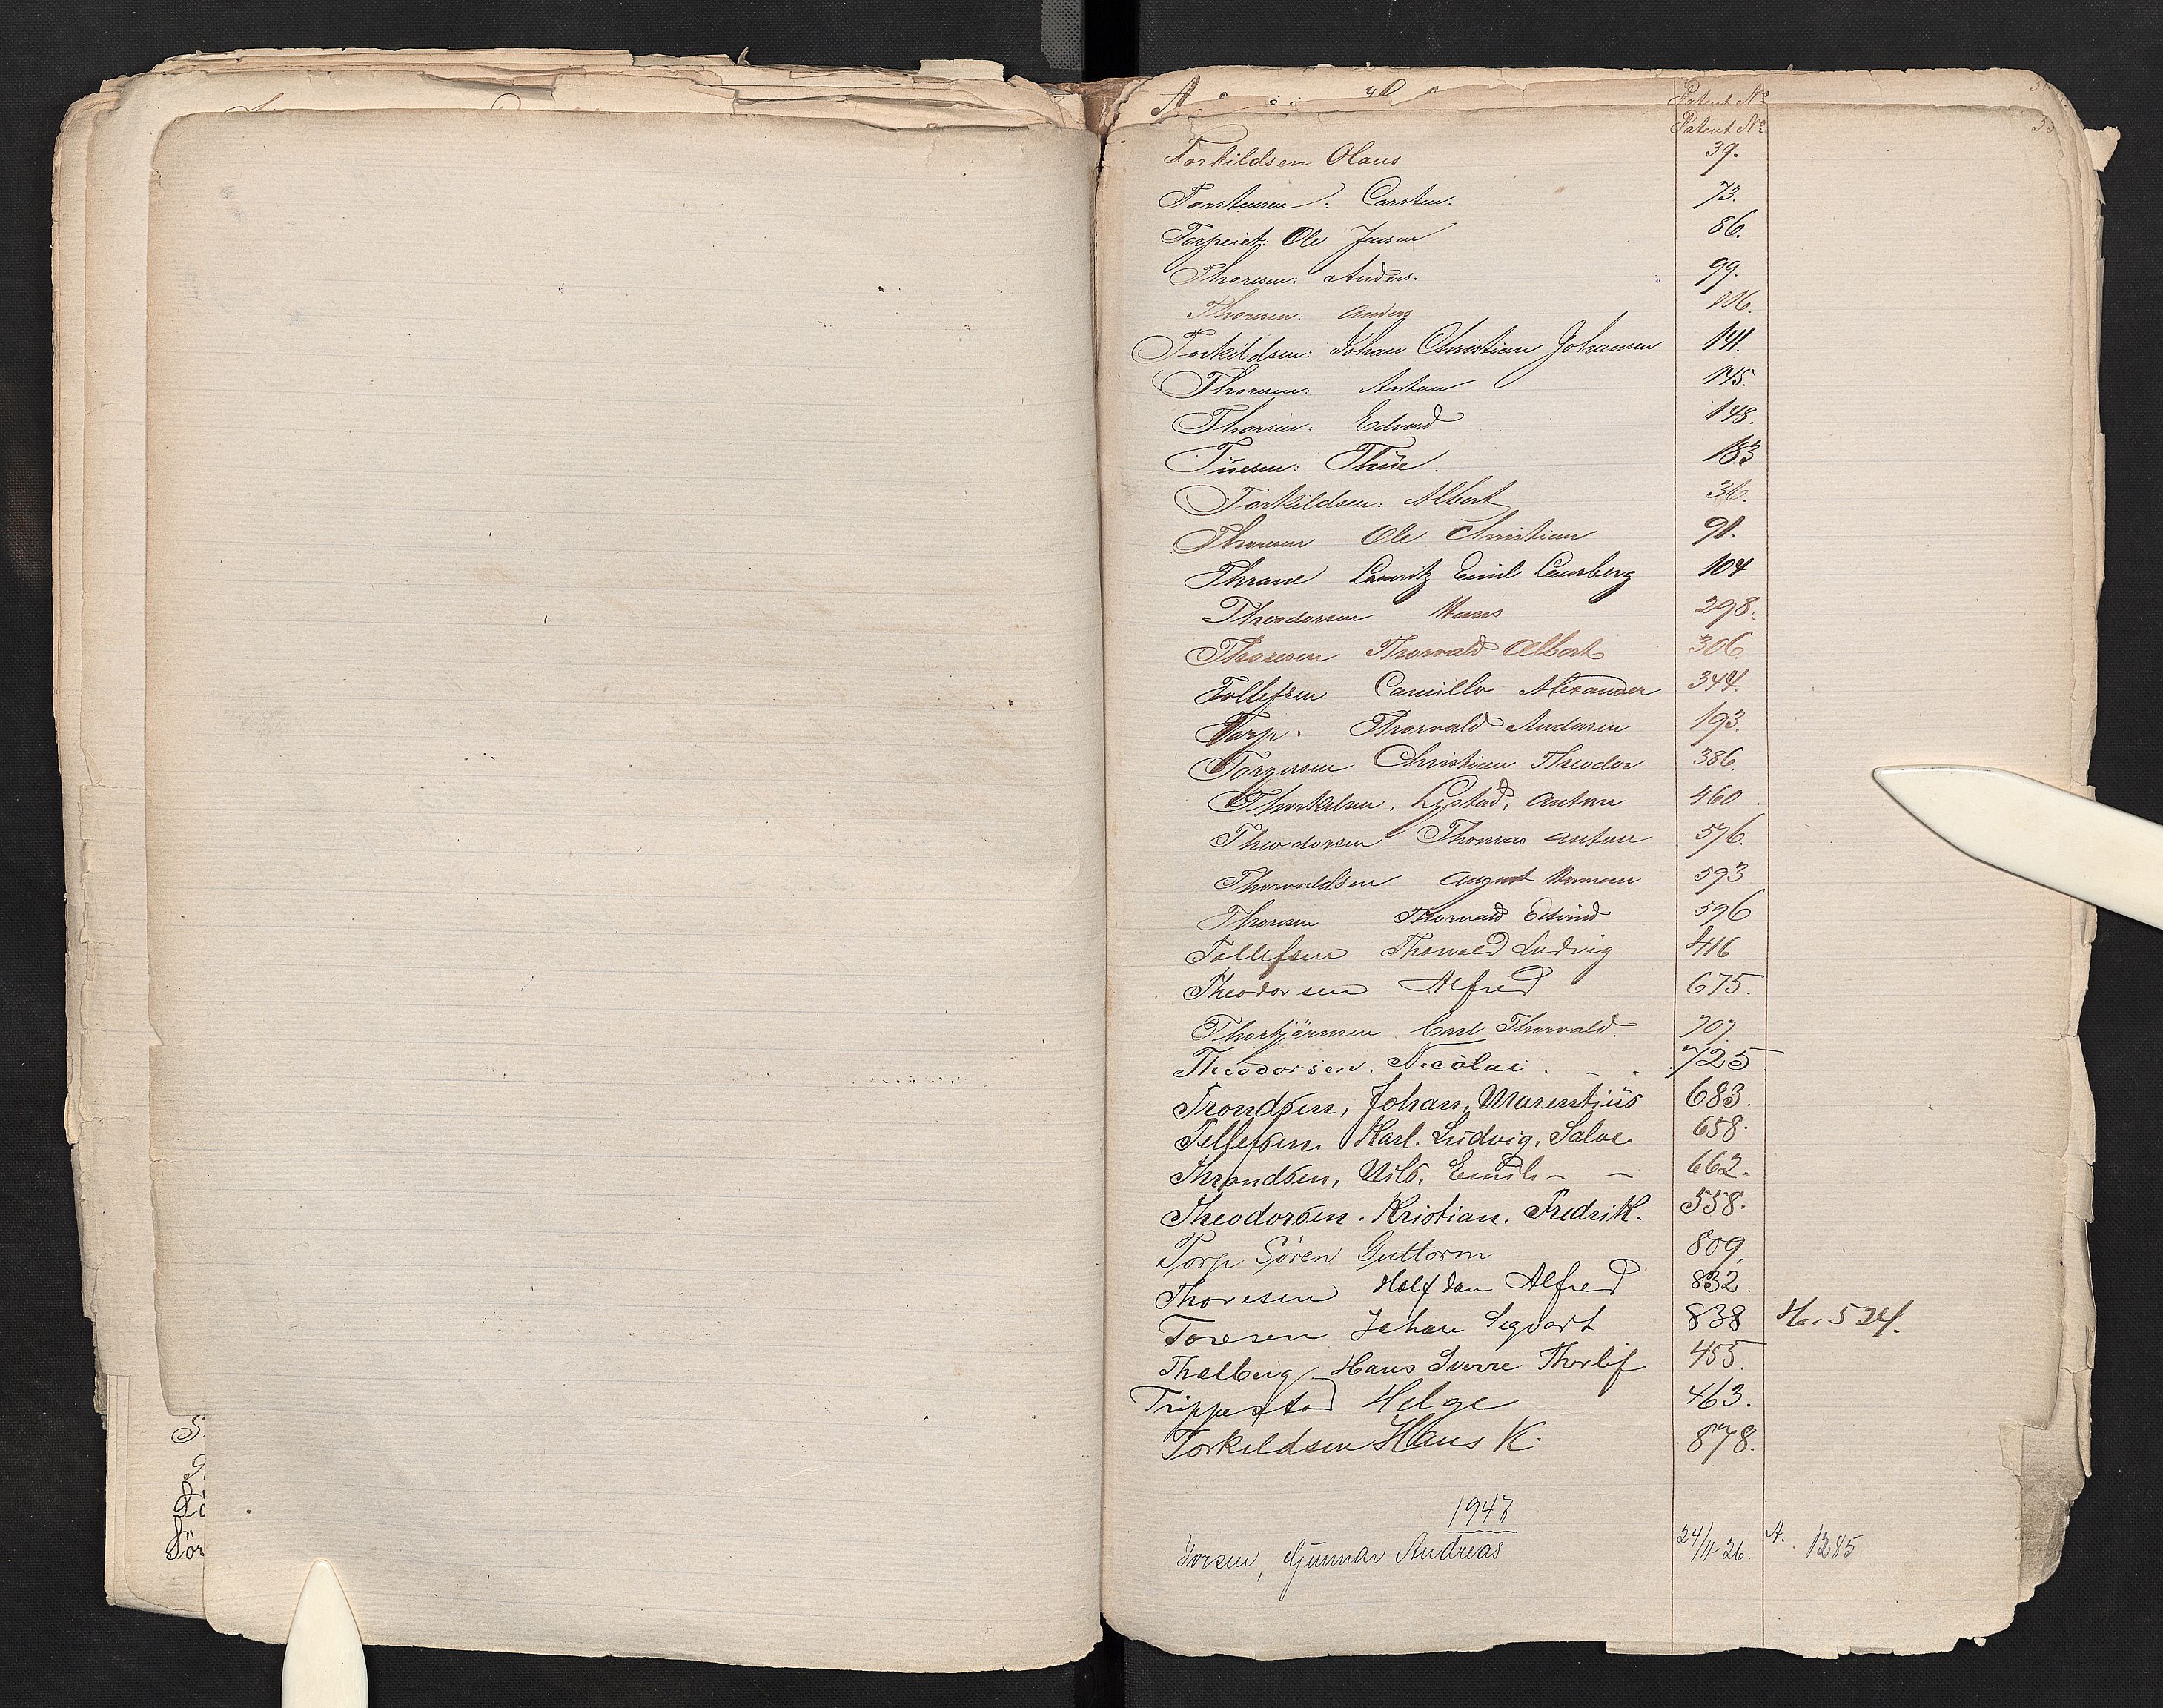 Patent No
Patent No
Torkildsen Olaus 39.
Torstensen: Carsten. 73.
Torpeiet: Ole Jensen 86.
Thoresen: Anders. 99.
Thoresen: Anders 116.
Torkildsen: Johan Christian Johansen 141.
Thoresen: Anton 145.
Thorsen: Edvard 148.
Tüesen: Thüe. 183
Torkildsen: Albert 36.
Thoresen Ole Christian 91.
Thrane Lauritz Emil Lansberg 104
Theodorsen Hans 298.
Thoresen Thorvald Albert 306
Tollefsen Camillo Alexander 344.
Torp. Thorvald Andersen 193.
Torgersen Christian Theodor 386.
Thorkelsen, Lystad, Anton 460
Theodorsen Thomas Anton 576.
Thorvaldsen August Herman 593
Thoresen Thorvald Edvind 596
Tollefsen Thorvald Ludvig 416
Theodorsen Alfred 675.
Thorbjörnsen Carl Thorvald. 707.
Theodorsen. Nicolai. - - 725
Trondsen, Johan, Marentiüs 683.
Tellefsen. Karl. Ludvig. Salve. 658.
Throndsen, Nils. Emil - - 662.
Theodorsen. Kristian. Fredrik. 558.
Torp Sören Guttorm 809,
Thoresen Halfdan Alfred 832.
Toresen Johan Sigvart 838 H. 524.
Thalberg Hans Sverre Thorlif 455.
Trippestad Helge 463.
Torkildsen Hans K. 878.
1947
Torsen, Gunnar Andreas 24/11-26. A. 1285